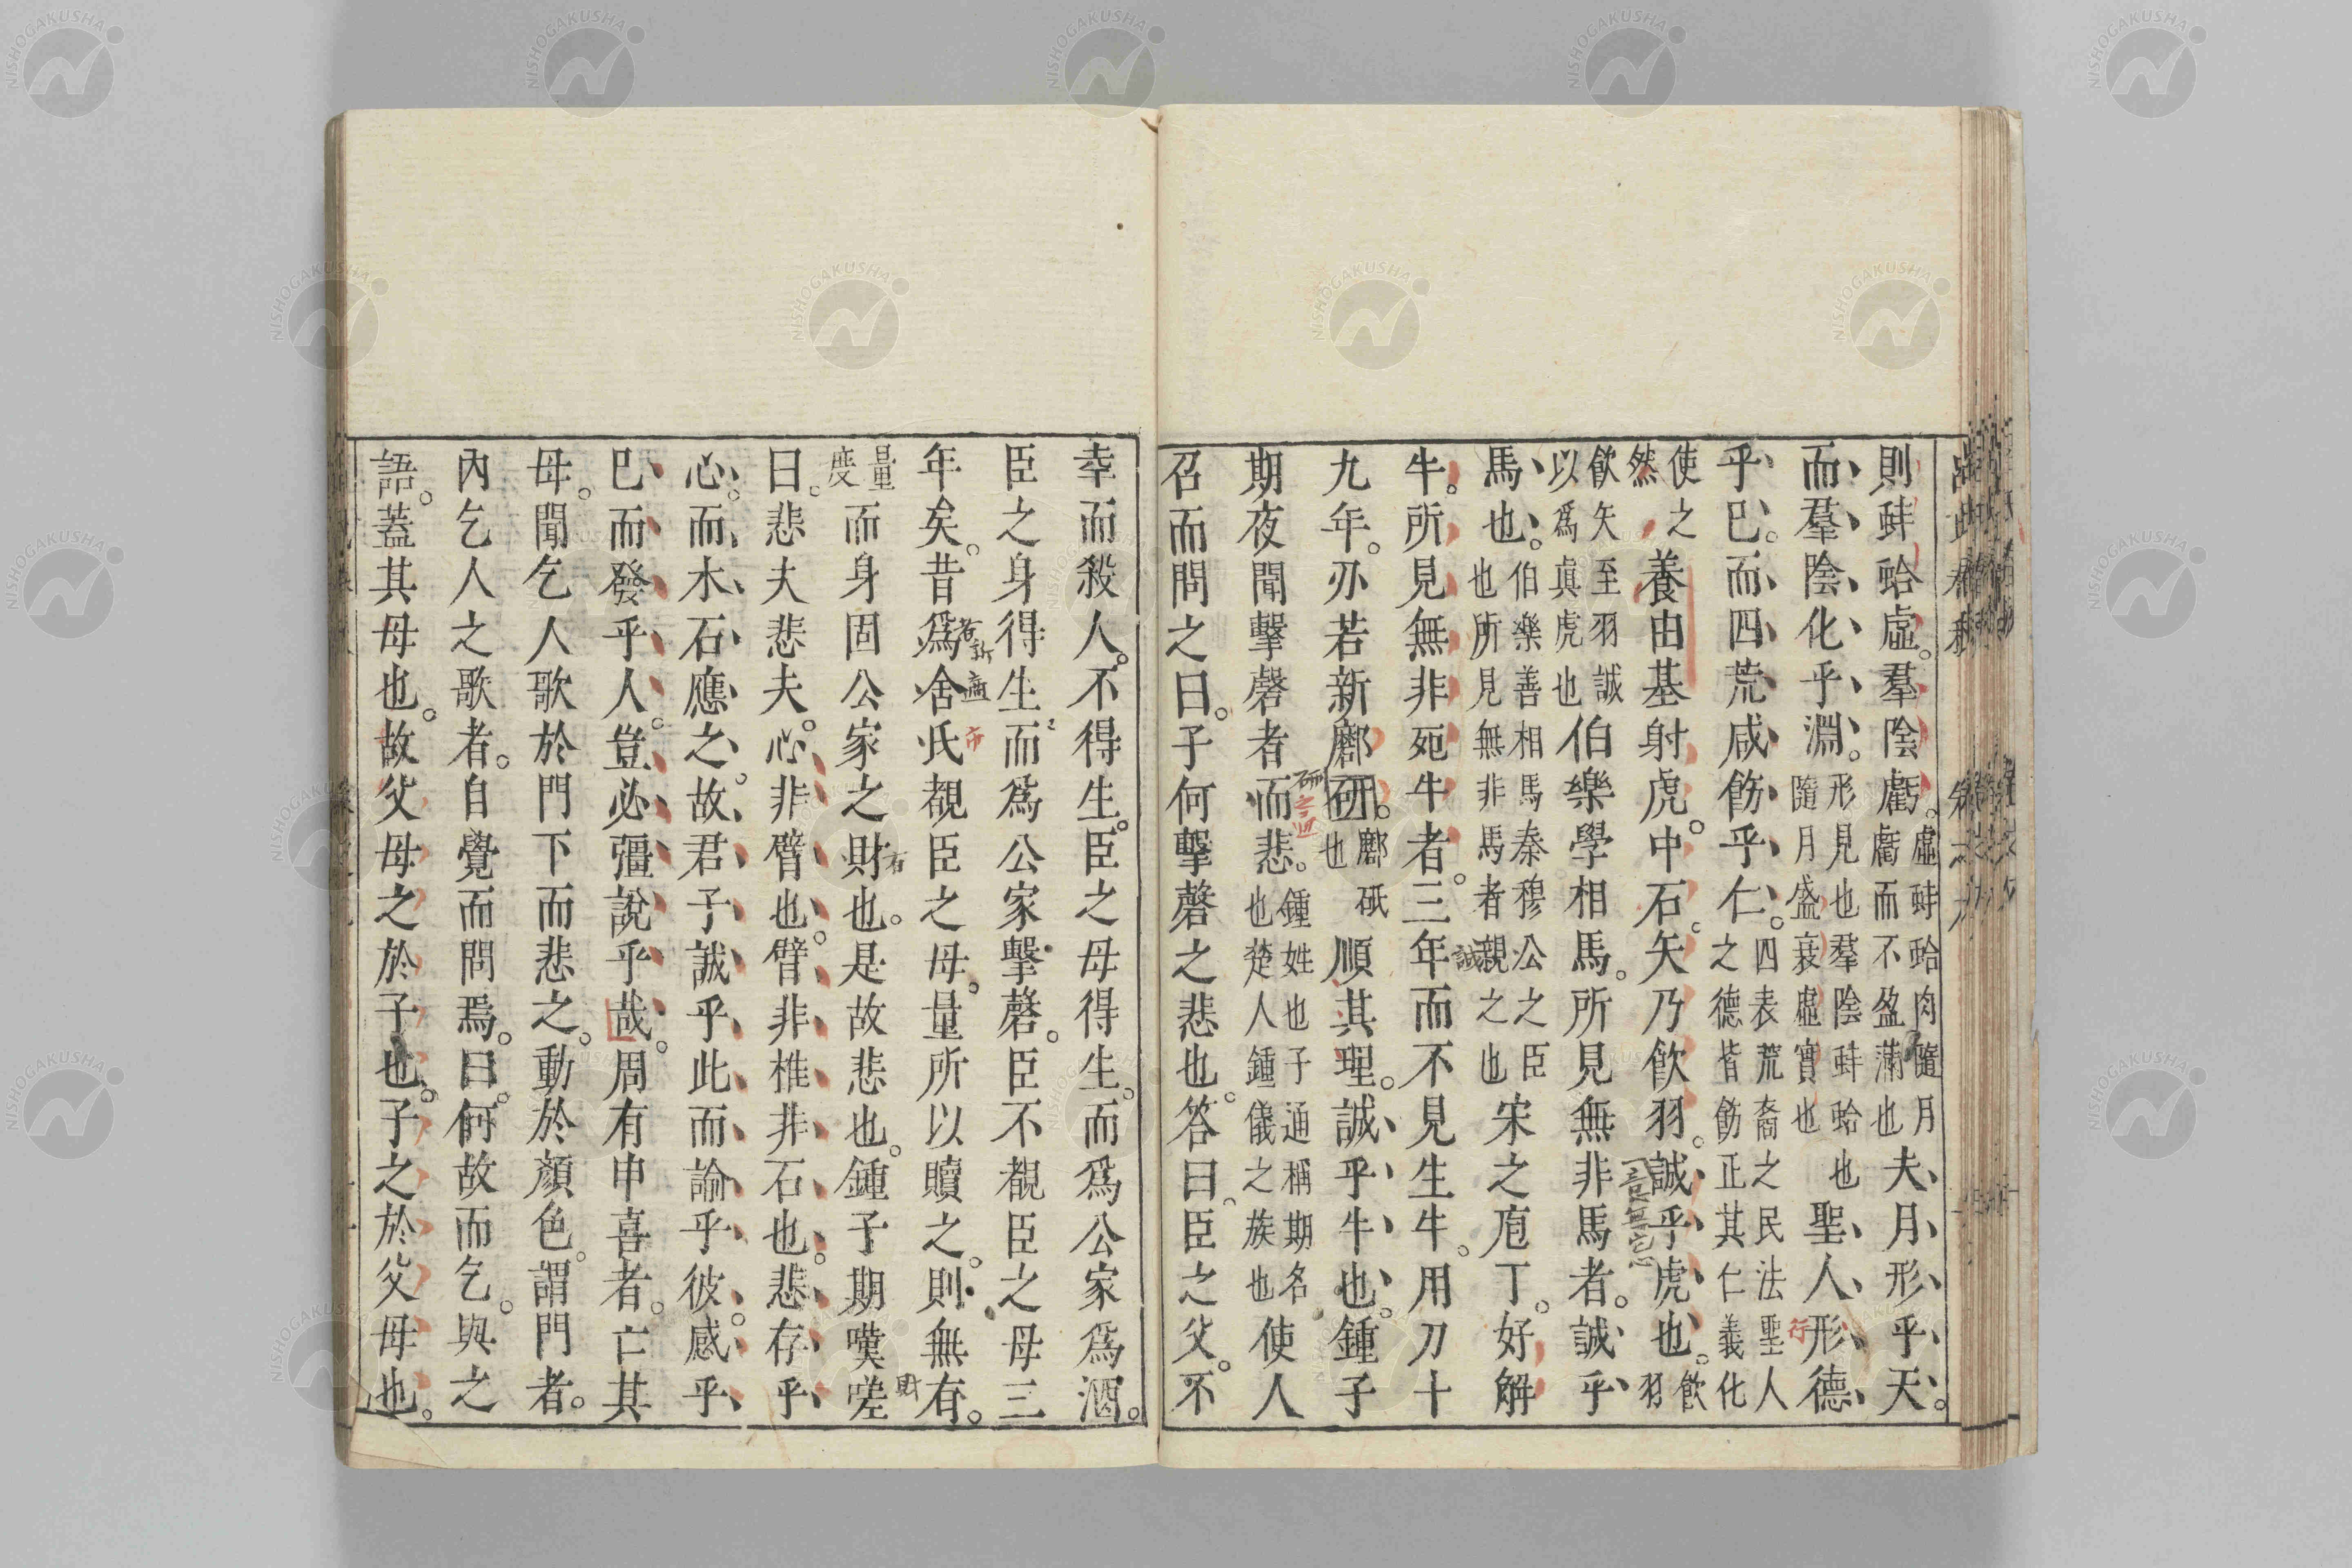 則蚌蛤虛。羣陰虧。虛蚌蛤肉隨月虧而不盈滿也夫、月、形、乎、天。
而、羣、陰、化、乎、淵。形見也羣陰蚌蛤也隨月盛衰虛實也聖、人、形、德、
乎、巳。而、四、荒、咸、飭、乎、仁。四表荒裔之民法聖人之德皆飭正其仁義化
使之然養由基射虎。中石。矢乃飲羽。誠、乎、虎、也。飲羽
飲矢至羽誠以爲眞虎也伯樂學相馬。所見無非馬者。誠、乎、
馬、也。伯樂善相馬秦穆公之臣也所見無非馬者親之也宋之庖丁。好解
牛。所見無非死牛者。三年而不見生牛。用刀十
九年。刃若新鄜研。鄜砥也順其理。誠、乎、牛、也。鍾子
期夜聞擊磬者而悲。鍾姓也子通稱期名也楚人鍾儀之族也使人
召而問之曰。子何擊磬之悲也。答曰。臣之父。不
幸而殺人。不得生。臣之母得生。而爲公家爲酒。
臣之身得生。而爲公家擊磬。臣不覩臣之母三
年矣。昔爲舍氏覩臣之母。量所以贖之。則無有。
量度而身固公家之財也。是故悲也。鍾子期嘆嗟
曰。悲夫悲夫。心非臂也。臂非椎非石也。悲存乎、
心。而、木、石、應、之、故、君、子、誠、乎、此、而、諭、乎、彼。感、乎、
巳、而發乎人。豈必彊說乎哉。周有申喜者。亡其
母。聞乞人歌於門下而悲之。動於顏色。謂門者。
內乞人之歌者。自覺而問焉。曰。何故而乞。與之
語。蓋其母也。故父母之於子也。子之於父母也。